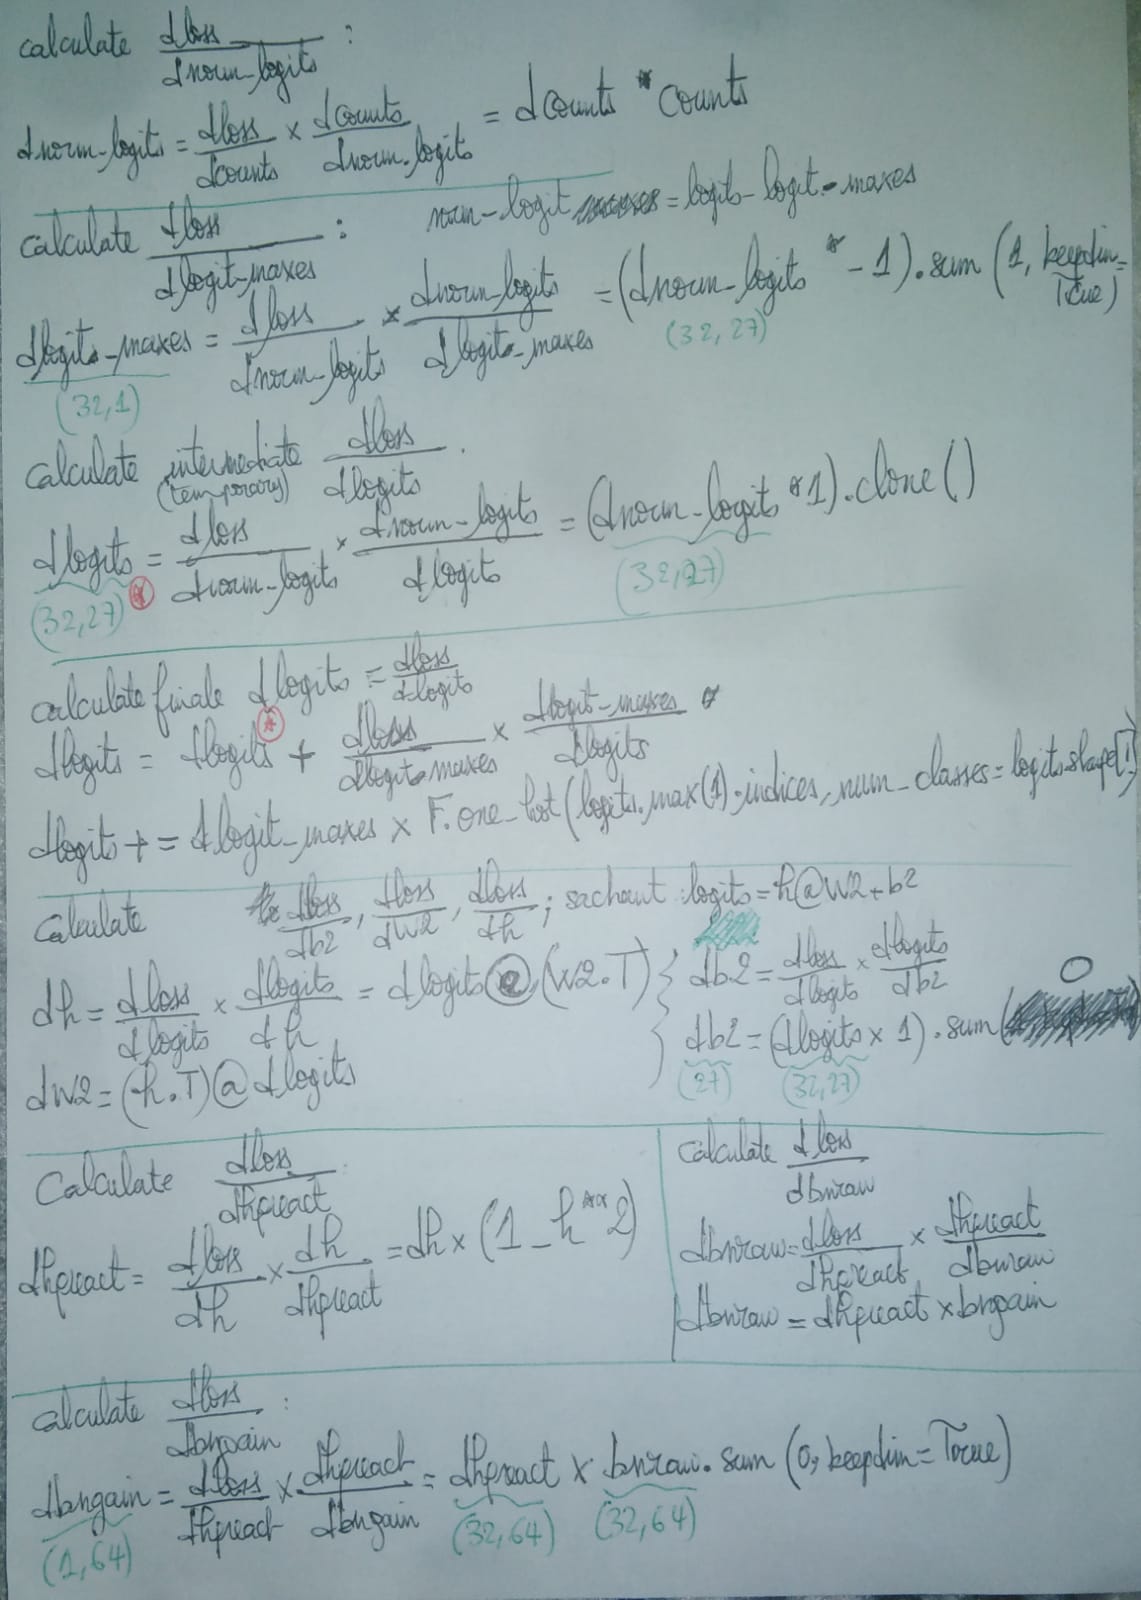 calculate dloss / dnorm_logits :
dnorm_logits = dloss / dcounts × dcounts / dnorm_logits = dcounts * counts
calculate dloss / dlogit_maxes : norm_logit = logits - logit_maxes
dlogits_maxes = dloss / dnorm_logits × dnorm_logits / dlogits_maxes = (dnorm_logits * -1).sum (1, keepdim=True)
(32,1) (32,27)
calculate intermediate (temporary) dloss / dlogits
dlogits = dloss / dnorm_logits * dnorm_logits / dlogits = (dnorm_logits * 1).clone()
(32,27) * (32,27)
calculate finale dlogits = dloss / dlogits
dlogits = dlogits* + dloss / dlogit_maxes × dlogit_maxes / dlogits *
dlogits += dlogit_maxes × F.one_hot(logits.max(1).indices, num_classes=logits.shape[1])
calculate dloss / db2, dloss / dW2, dloss / dh ; sachant logits = h@W2+b2
dh = dloss / dlogits × dlogits / dh = dlogits @ (W2.T) } db2 = dloss / dlogits × dlogits / db2
dW2 = (h.T)@dlogits
db2 = (dlogits × 1).sum( 0
(27) (32,27)
Calculate dloss / dhpreact
dhpreact = dloss / dh × dh / dhpreact = dh × (1 - h**2)
calculate dloss / dbnraw
dbnraw = dloss / dhpreact × dhpreact / dbnraw
dbnraw = dhpreact × bngain
calculate dloss / dbngain :
dbngain = dloss / dhpreact × dhpreact / dbngain = dhpreact × bnraw.sum (0, keepdim=True)
(1,64) (32,64) (32,64)